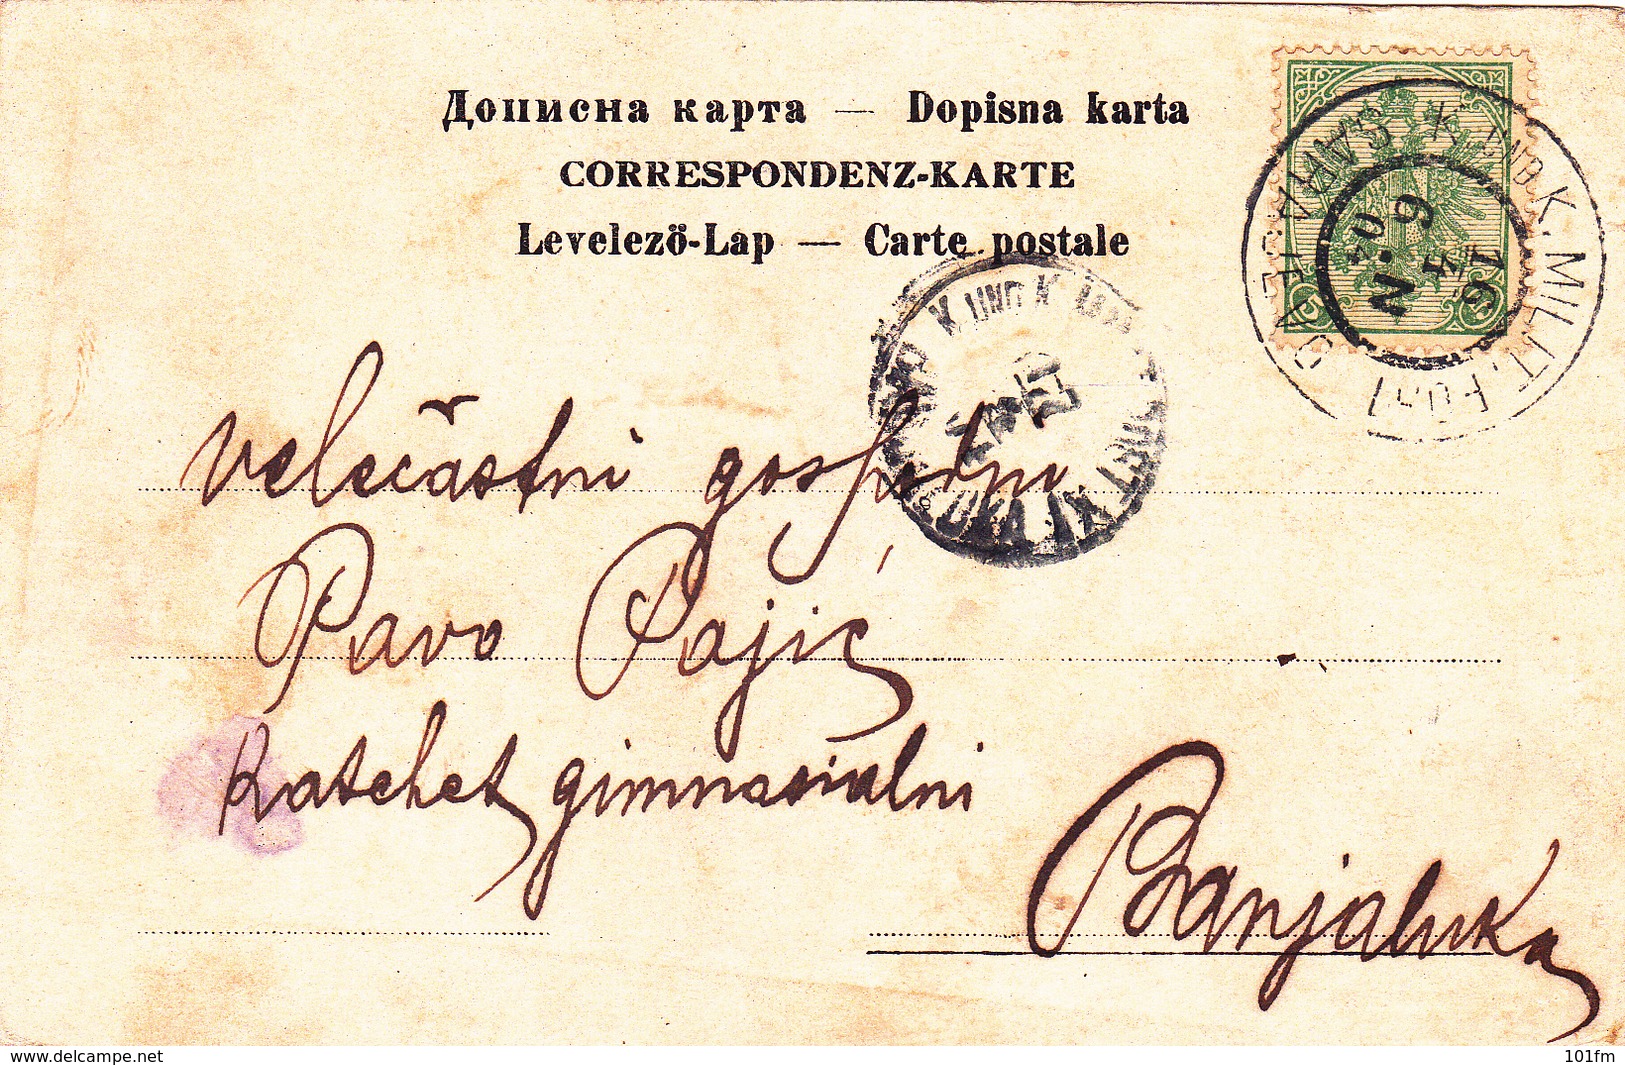 Дописна карта — Dopisna karta
CORRESPONDENZ-KARTE
Levelező-Lap — Carte postale
K. UND K. MILIT. POST SARAJEVO
16
9
04
N
5
5
K. UND K. MILIT. POST
LUKA IX
Velečastni gospodin
Pavo Pajic
Katehet gimnasialni
Banjaluka
www.delcampe.net
101fm